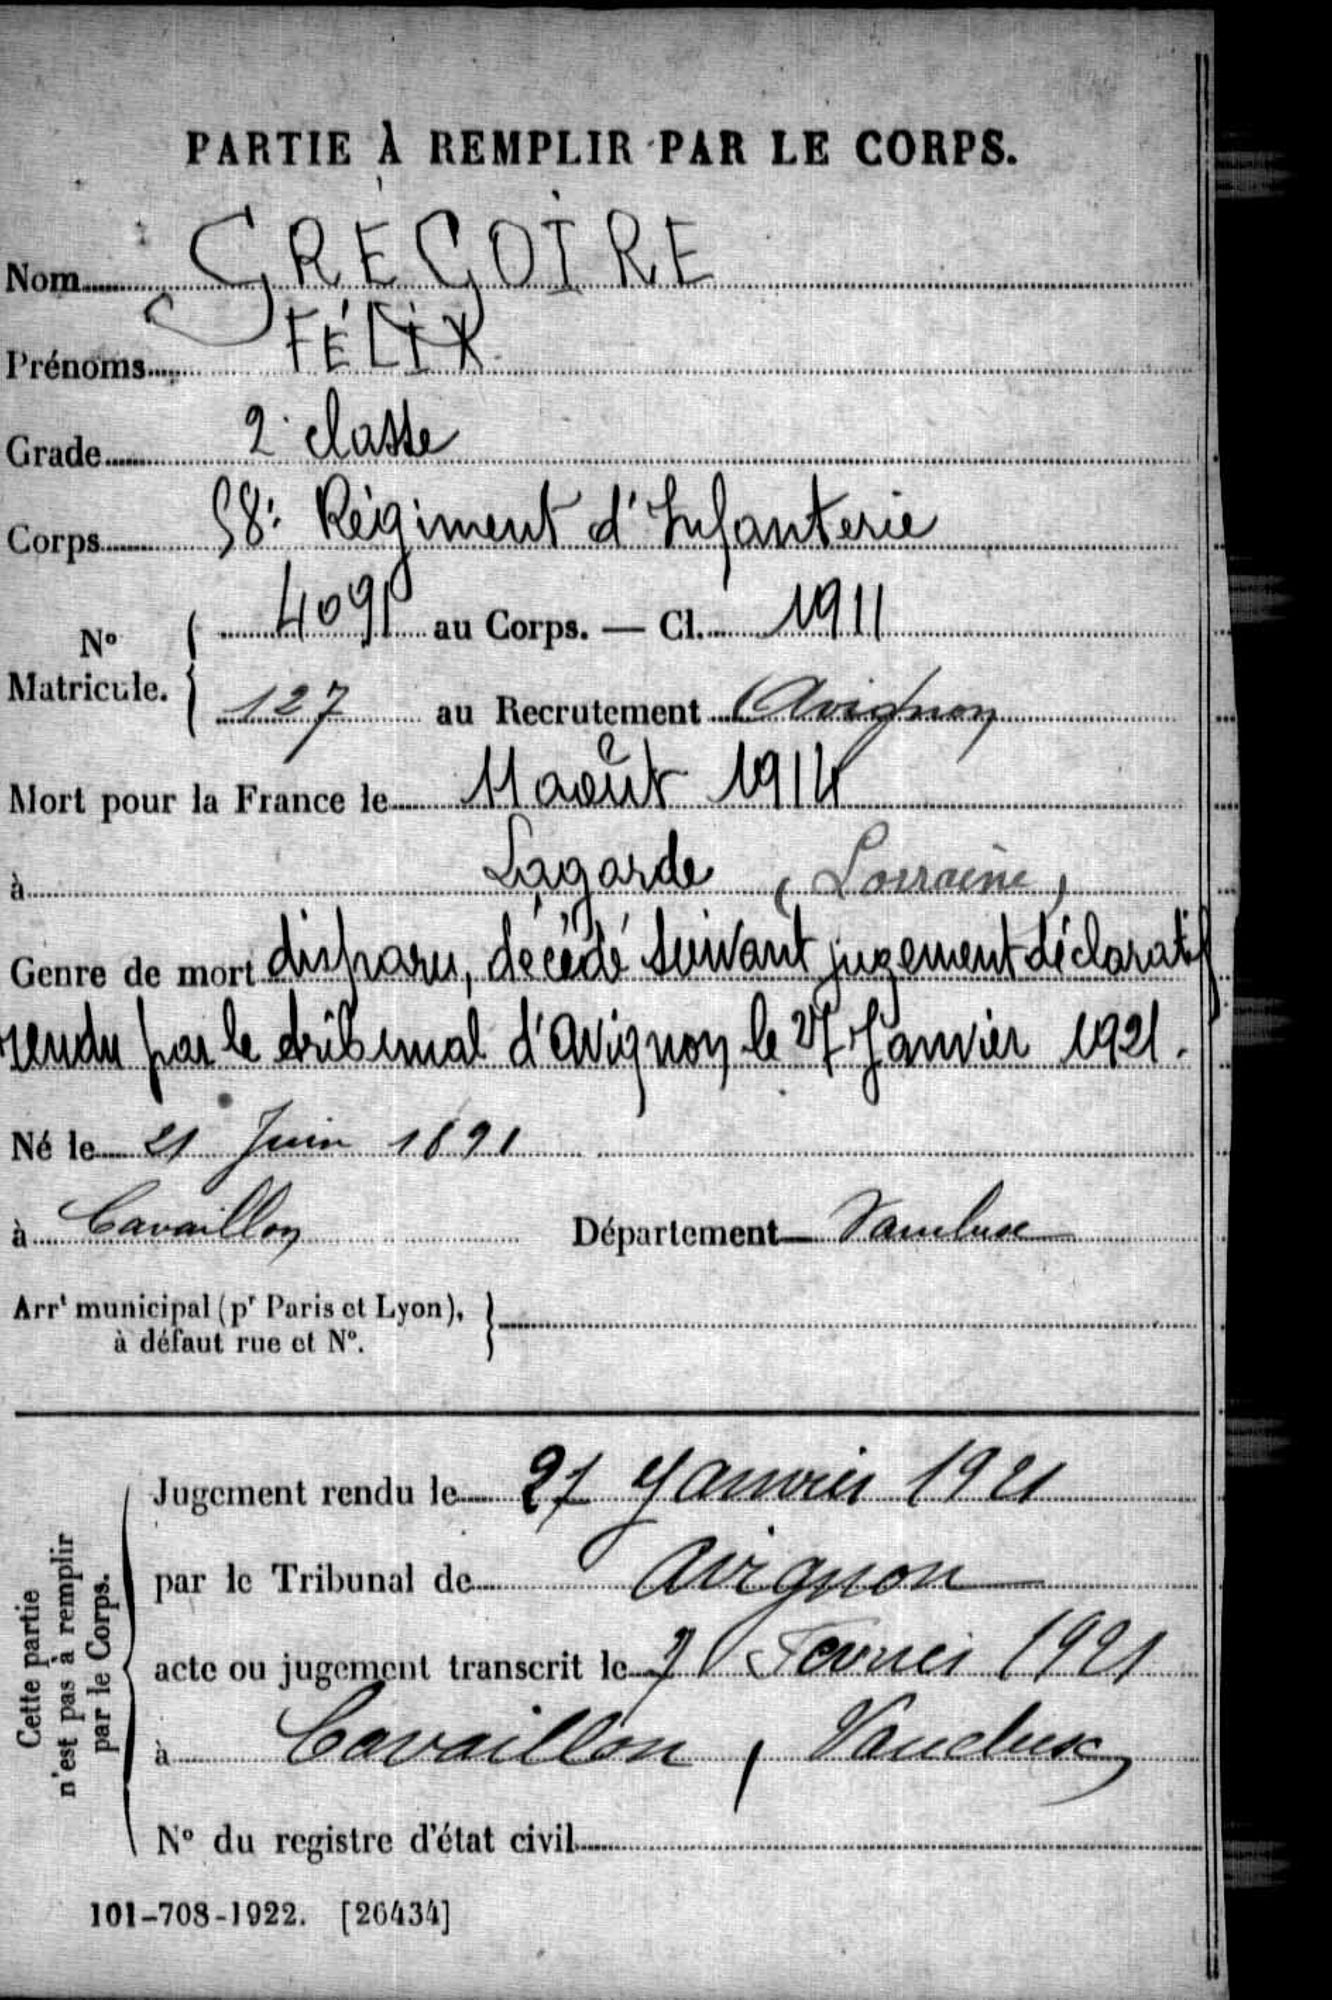 PARTIE À REMPLIR PAR LE CORPS.
Nom GRÉGOIRE
Prénoms FÉLIX
Grade 2e classe
Corps 58e Régiment d'Infanterie
No Matricule. { 4091 au Corps. — Cl. 1911
127 au Recrutement Avignon
Mort pour la France le 11 août 1914
à Lagarde (Lorraine)
Genre de mort disparu, décédé suivant jugement déclaratif
rendu par le tribunal d'Avignon le 27 Janvier 1921.
Né le 21 Juin 1891
à Cavaillon Département Vaucluse
Arrt municipal (pr Paris et Lyon), à défaut rue et No. }
Cette partie n'est pas à remplir par le Corps.
Jugement rendu le 27 Janvier 1921
par le Tribunal de Avignon
acte ou jugement transcrit le 7 Février 1921
à Cavaillon, Vaucluse
No du registre d'état civil
101-708-1922. [26434]